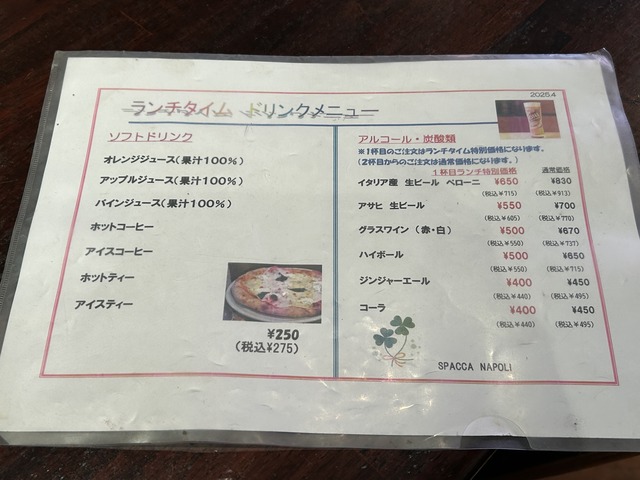 2025.4
ランチタイム ドリンクメニュー
ソフトドリンク
オレンジジュース(果汁100%)
アップルジュース(果汁100%)
パインジュース(果汁100%)
ホットコーヒー
アイスコーヒー
ホットティー
アイスティー
¥250
(税込¥275)
アルコール・炭酸類
※1杯目のご注文はランチタイム特別価格になります。
(2杯目からのご注文は通常価格になります。)
1杯目ランチ特別価格 通常価格
イタリア産 生ビール ペローニ ¥650 ¥830
(税込¥715) (税込¥913)
アサヒ 生ビール ¥550 ¥700
(税込¥605) (税込¥770)
グラスワイン (赤・白) ¥500 ¥670
(税込¥550) (税込¥737)
ハイボール ¥500 ¥650
(税込¥550) (税込¥715)
ジンジャーエール ¥400 ¥450
(税込¥440) (税込¥495)
コーラ ¥400 ¥450
(税込¥440) (税込¥495)
SPACCA NAPOLI